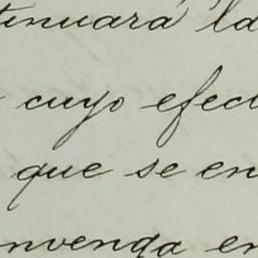 tinuará la
cuyo efect
que se en
nvenga en